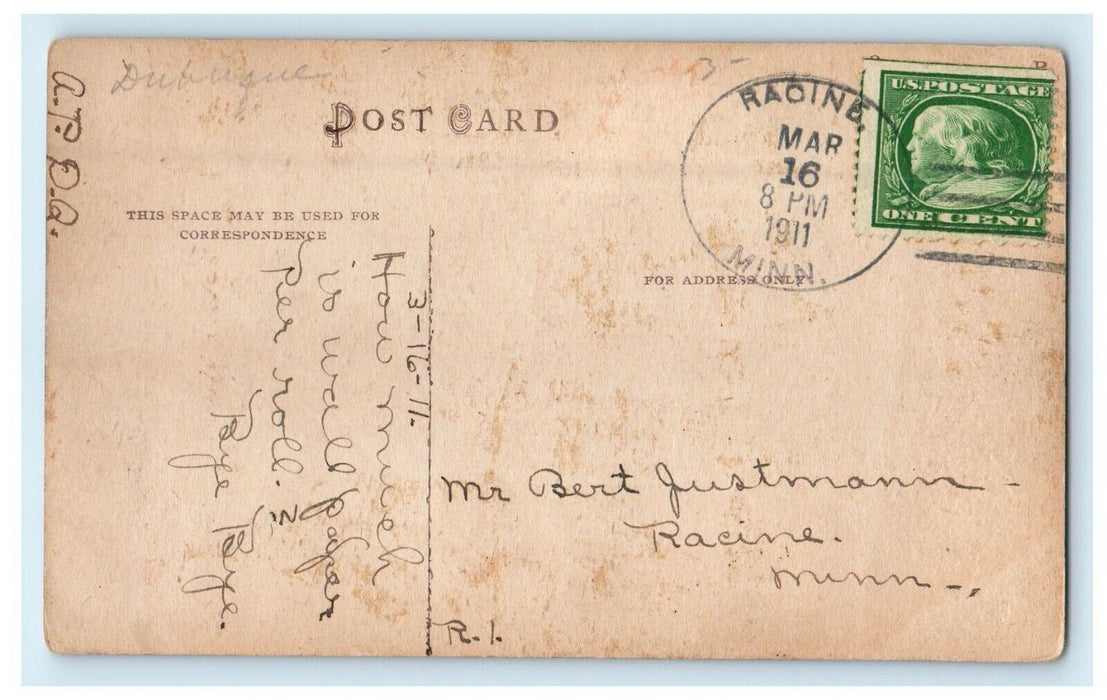 Dubuque
3-
POST CARD
A.P.D.Q.
THIS SPACE MAY BE USED FOR
CORRESPONDENCE
RACINE,
MAR
16
8 PM
1911
MINN.
U.S.POSTAGE
ONE CENT
FOR ADDRESS ONLY.
3-16-11.
How much
is wall paper
per roll.
Bye Bye.
Mr Bert Justmann -
Racine.
Minn-,
R.1.